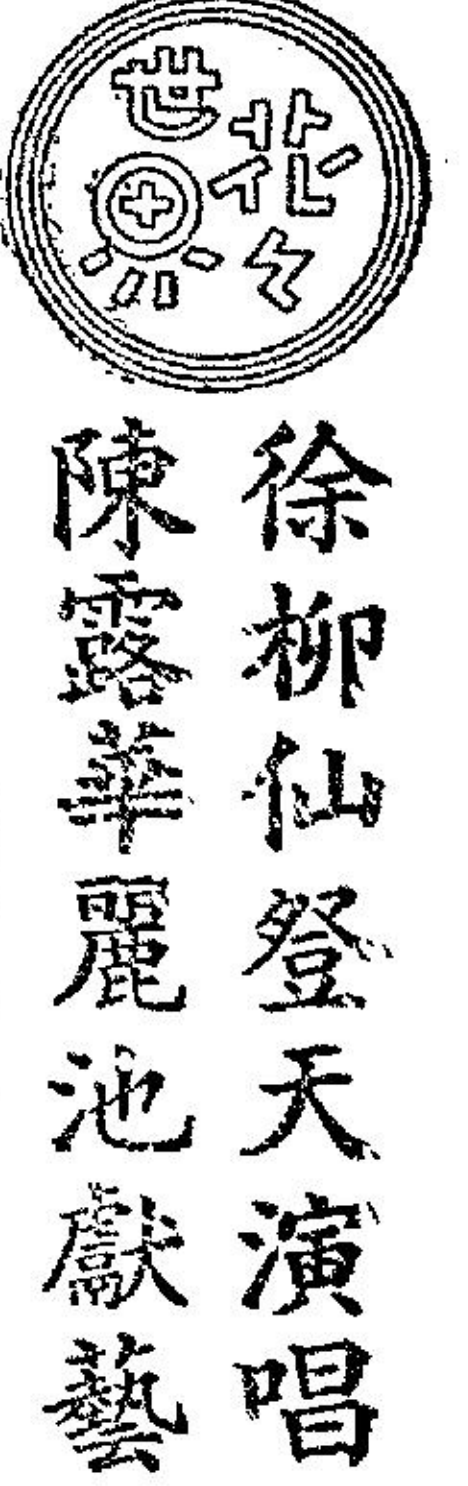 花花世界
徐柳仙登天演唱
陳露華麗池獻藝